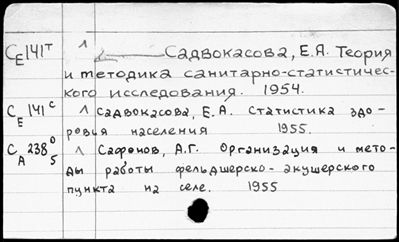 СЕ141т Л Садвокасова, Е.Я. Теория
и методика санитарно-статистичес-
кого исследования. 1954.
СЕ141с Л Садвокасова, Е.А. Статистика здо-
ровья населения 1955.
СА238о5 Л Сафонов, А.Г. Организация и мето-
ды работы фельдшерско-акушерского
пункта на селе. 1955